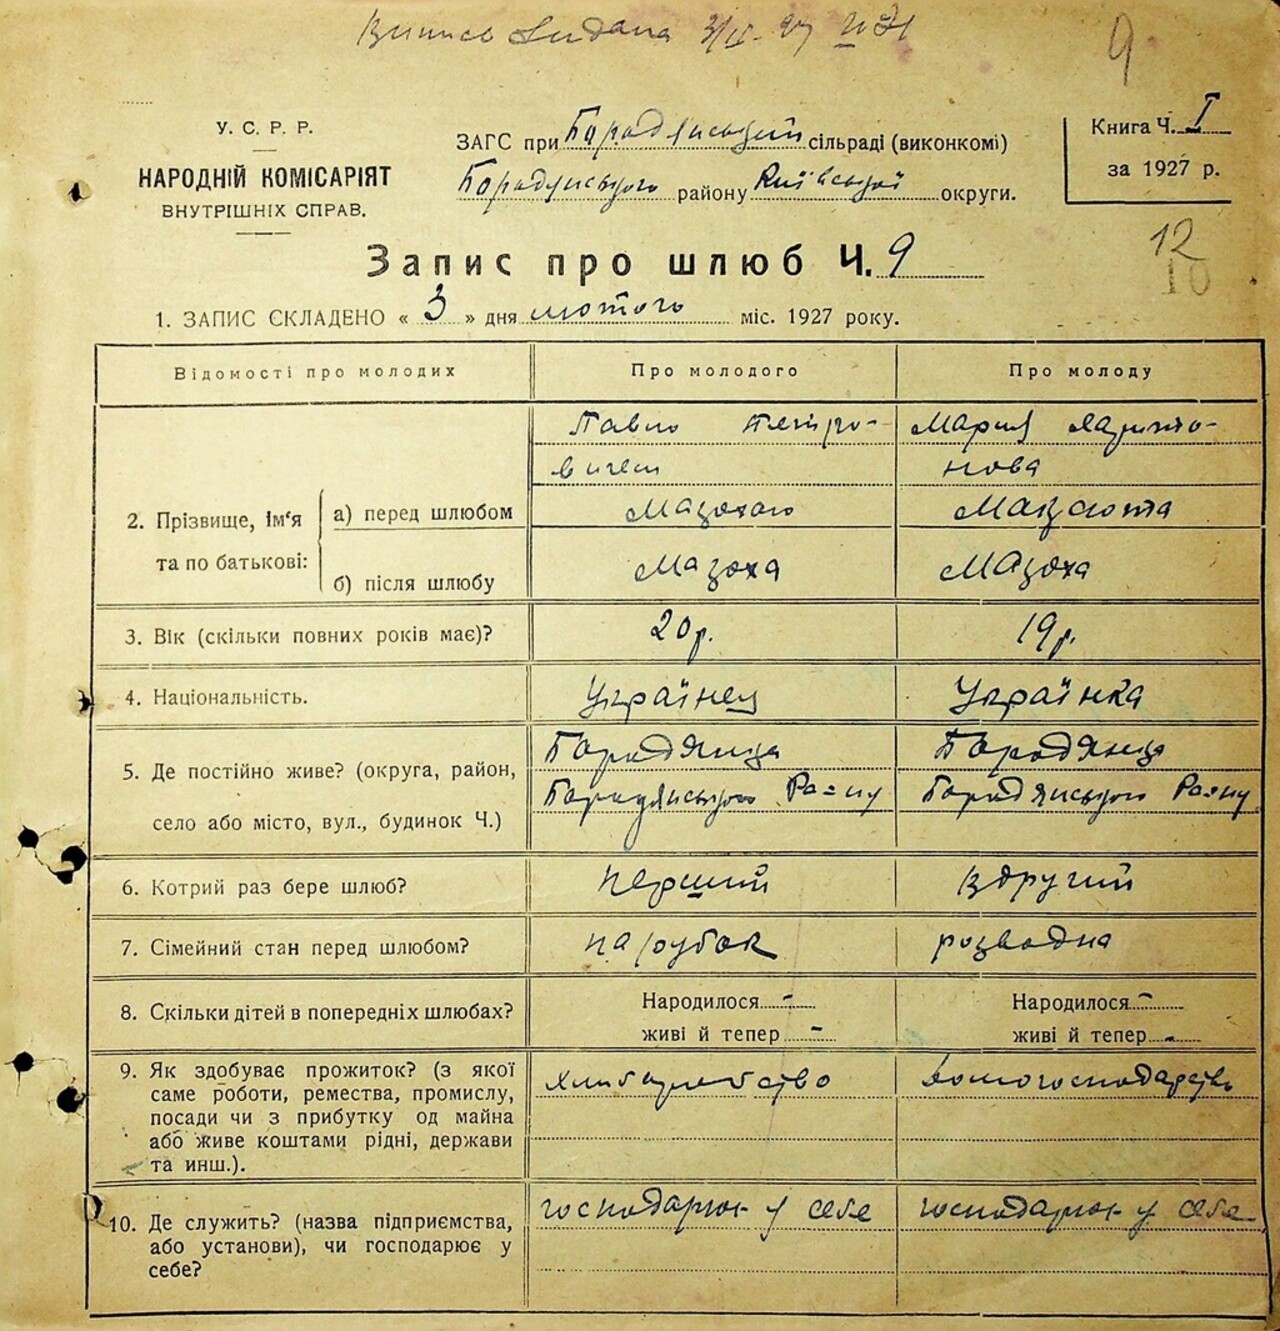 9
У. С. Р. Р.
НАРОДНІЙ КОМІСАРІЯТ
ВНУТРІШНІХ СПРАВ.
ЗАГС при Бородянський сільраді (виконкомі)
Бородянського району Київської округи.
Книга Ч. I
за 1927 р.
Запис про шлюб Ч. 9
12
10
1. ЗАПИС СКЛАДЕНО « 3 » дня лютого міс. 1927 року.
Відомості про молодих Про молодого Про молоду
2. Прізвище, ім‘я та по батькові:
а) перед шлюбом
б) після шлюбу
Павло Петро-
вичем
Мазоха
Мария
нова
Мазюта
Мазоха
3. Вік (скільки повних років має)? 20 р. 19 р.
4. Національність. Українец Українка
5. Де постійно живе? (округа, район,
село або місто, вул., будинок Ч.)
Бородянца
Бородянського Району
Бородянца
Бородянського Району
6. Котрий раз бере шлюб? перший вдругий
7. Сімейний стан перед шлюбом? парубок розводна
8. Скільки дітей в попередніх шлюбах?
Народилося -
живі й тепер -
Народилося -
живі й тепер -
9. Як здобуває прожиток? (з якої
саме роботи, ремества, промислу,
посади чи з прибутку од майна
або живе коштами рідні, держави
та инш.).
домогосподарство
10. Де служить? (назва підприємства,
або установи), чи господарює у
себе?
господарює у себе
господарює у себе